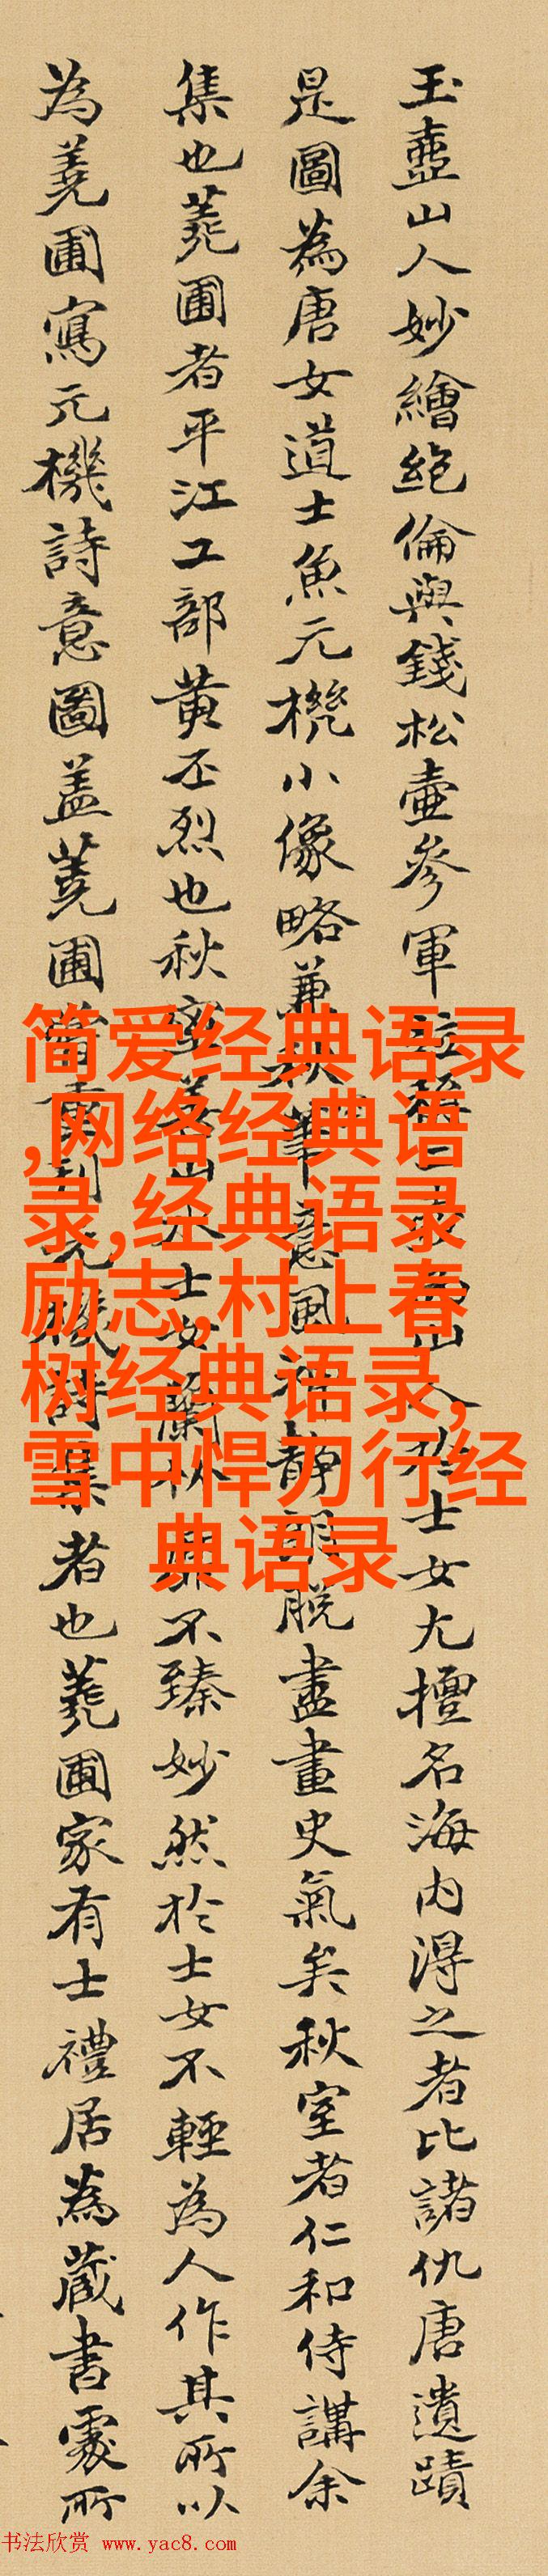 玉壺山人妙繪絶倫與錢松壺參軍山人於士女尤擅名海内得之者比諸仇唐遺蹟
是圖為唐女道士魚元機小像略兼秋筆意風神静朗脱盡畫史氣矣秋室者仁和侍講余
集也蕘圃者平江工部黄丕烈也秋室善山水士女蘭竹靡不臻妙然於士女不輕為人作其所以
為蕘圃寫元機詩意圖盖蕘圃嘗重刊元機詩集者也蕘圃家有士禮居為藏書處所
简爱经典语录
,网络经典语
录,经典语录
励志,村上春
树经典语录,
雪中悍刀行经
典语录
书法欣赏 www.yac8.com